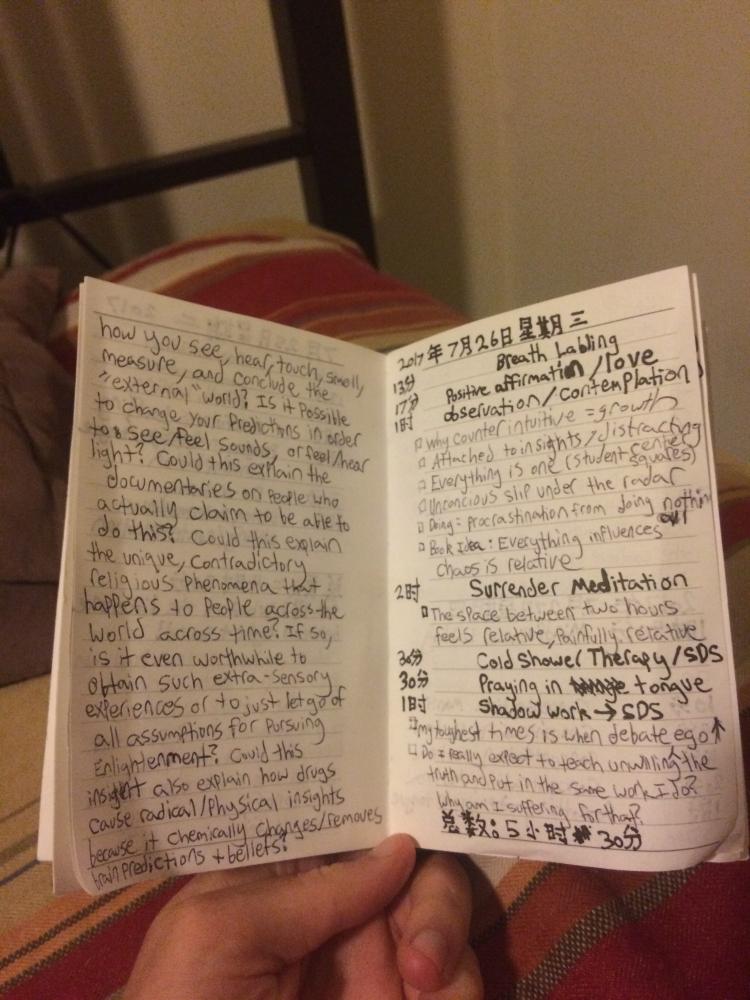 how you see, hear, touch, smell,
measure, and conclude the
"external" world? Is it Possible
to change your Predictions in order
to see/feel sounds, or feel/hear
light? Could this explain the
documentaries on People who
actually claim to be able to
do this? Could this explain
the unique, contradictory
religious Phenomena that
happens to People across the
World across time? If so,
is it even worthwhile to
obtain such extra-sensory
experiences or to just let go of
all assumptions for Pursuing
Enlightenment? Could this
insight also explain how drugs
cause radical/Physical insights
because it chemically changes/removes
brain Predictions + beliefs?
2017年7月26日星期三
13分 Breath Labling
17分 Positive affirmation/love
1时 observation/contemplation
Why counter intuitive = growth
Attached to insights/distracting
Everything is one (student center squares)
Unconcious slip under the radar
Doing: Procrastination from doing nothing
Book Idea: Everything influences
chaos is relative
2时 Surrender Meditation
The space between two hours
feels relative, Painfully relative
30分 Cold Shower Therapy/SDS
30分 Praying in tongue
1时 Shadow work → SDS
my toughest times is when debate ego ↑
Do I really expect to teach unwilling the
truth and Put in the same work I do?
Why am I suffering for that?
总数: 5小时 30分